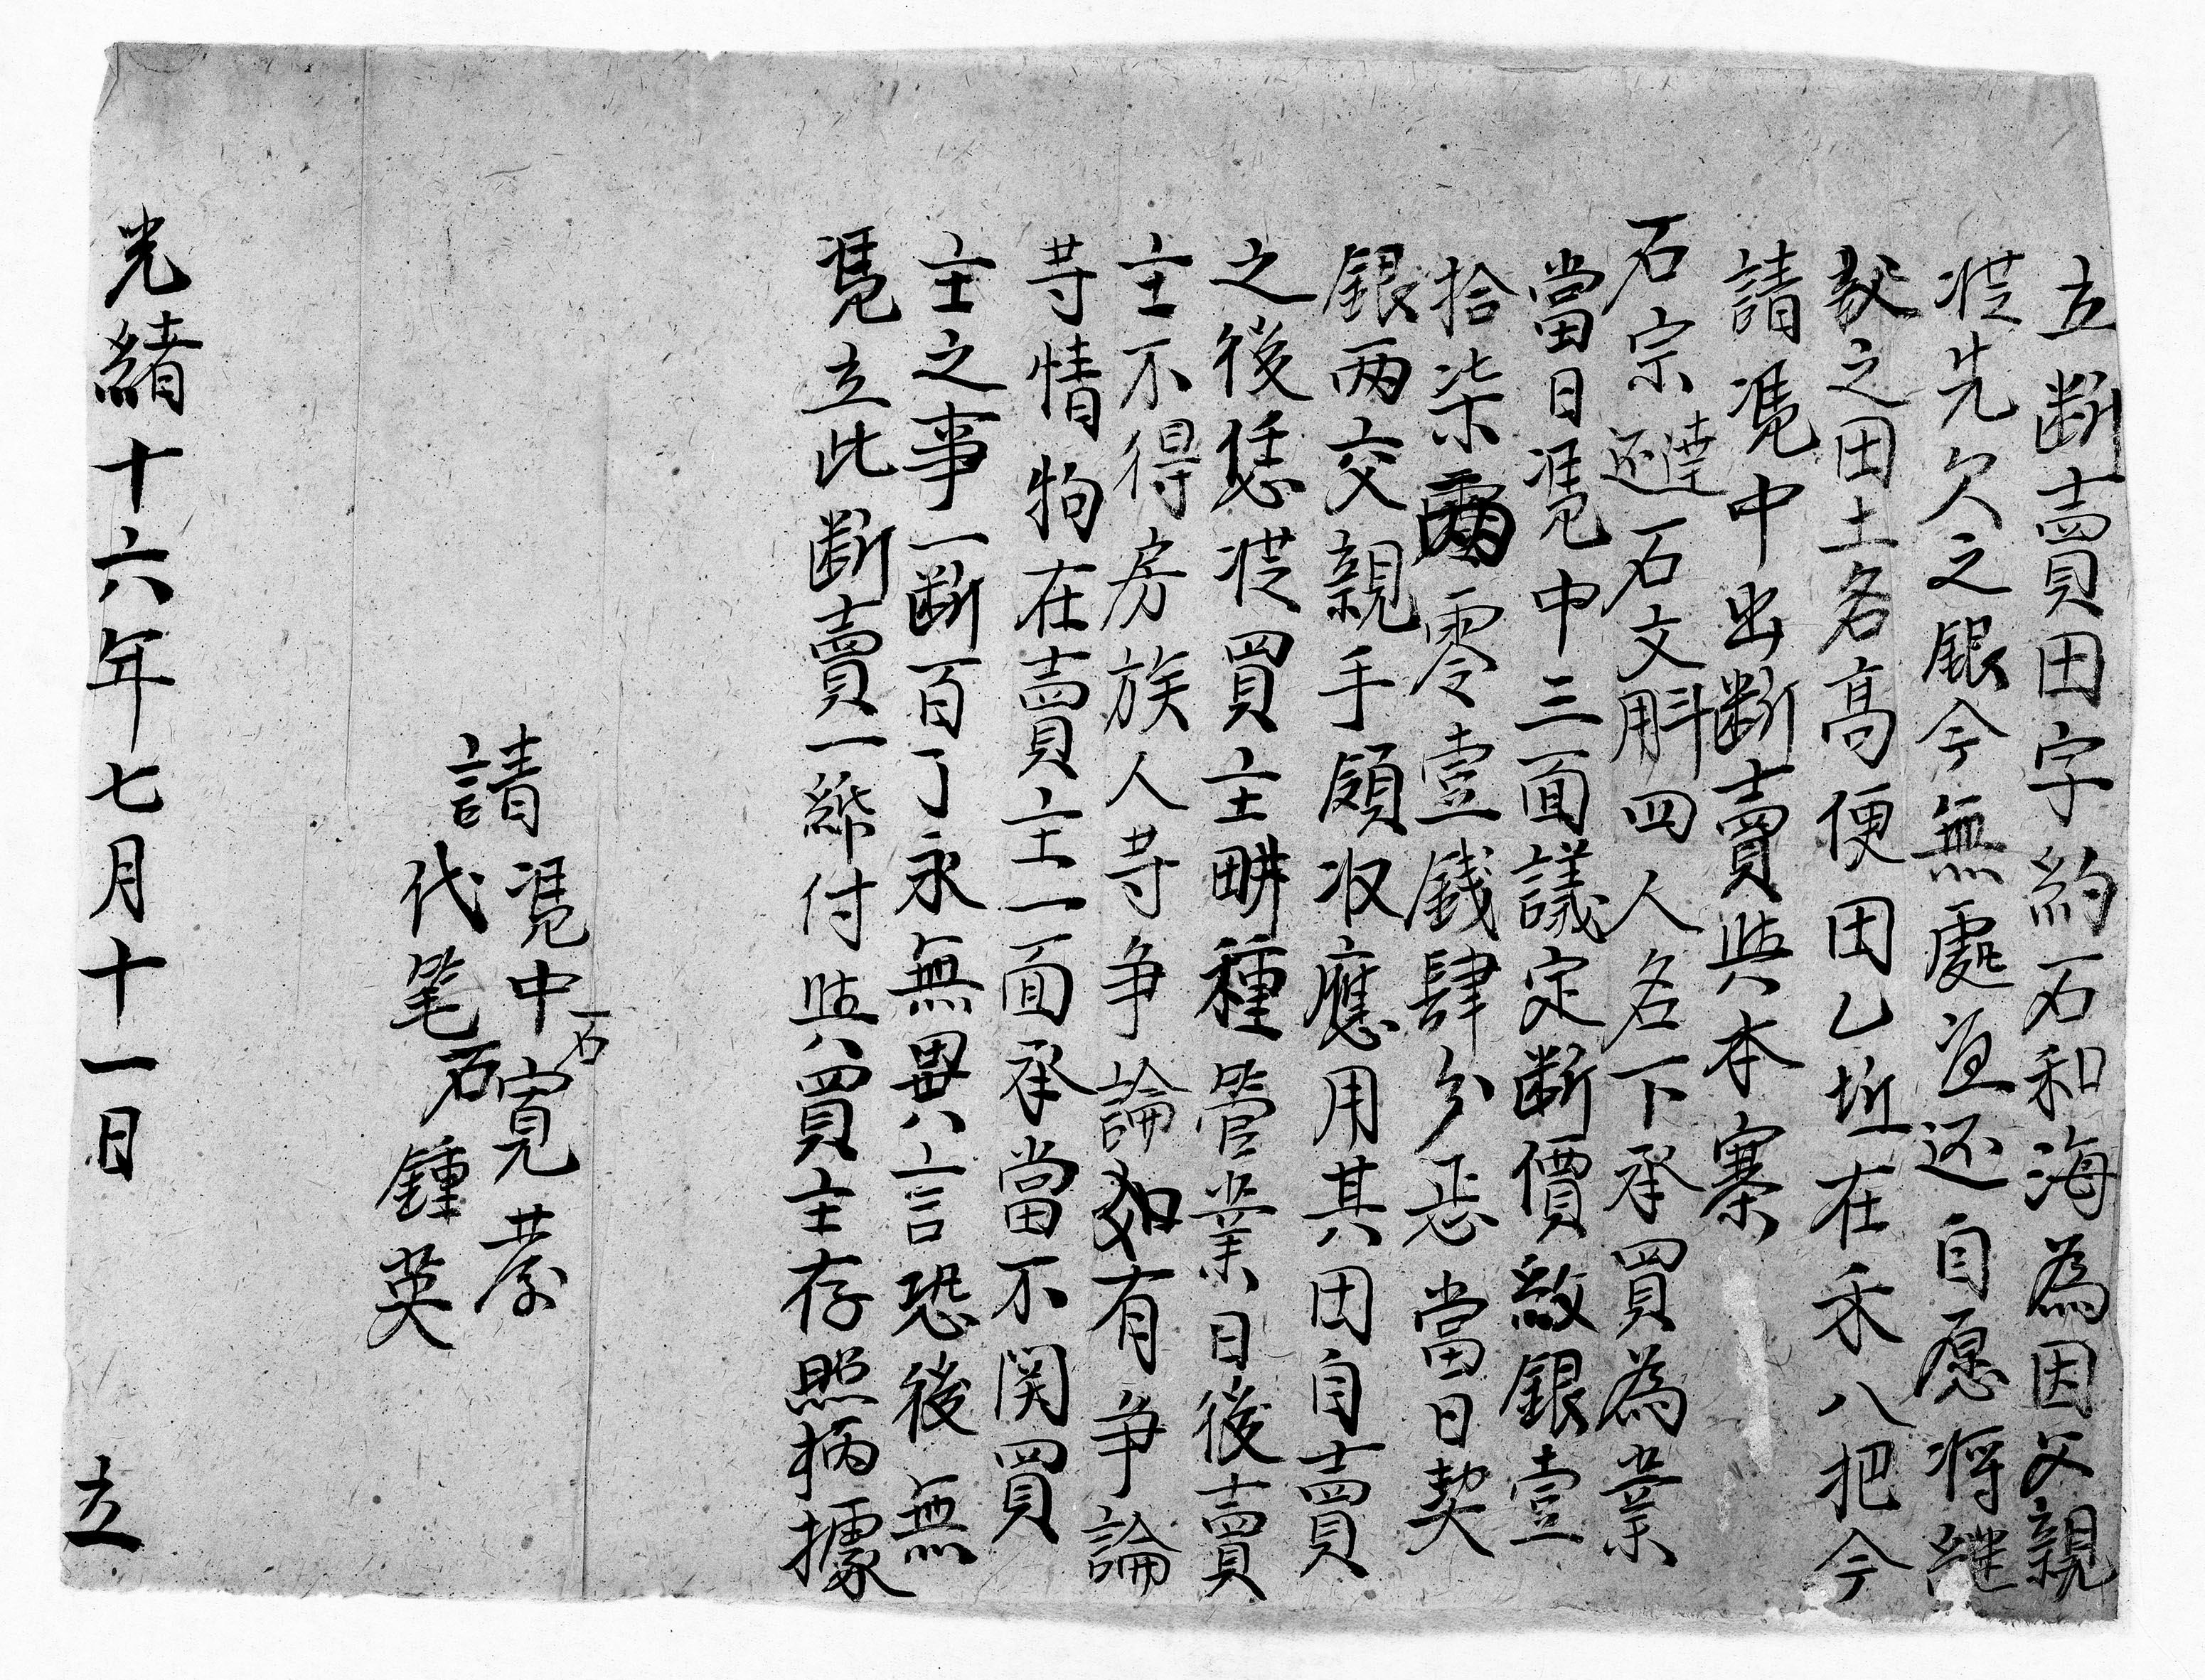 立断賣田字約石和海為因父親
從先欠之銀今無處逗还自愿将継
献之田土名高便田乙坵在禾八把今
請馮中出断賣與本寨
石宗還達石文斛四人名下承買為業
當日馮中三面議定断價紋銀壹
拾柒兩零壹錢肆分悉當日契
銀两交親手領收應用其田自賣
之後恁從買主畊種管業日後賣
主不得房族人䓁争論如有争論
䓁情狥在賣主一面承當不関買
主之事一断百了永無異言恐後無
馮立此断賣一帋付與買主存照柄據
請馮中石寛孝
代笔石鍾英
光緒十六年七月十一日 立